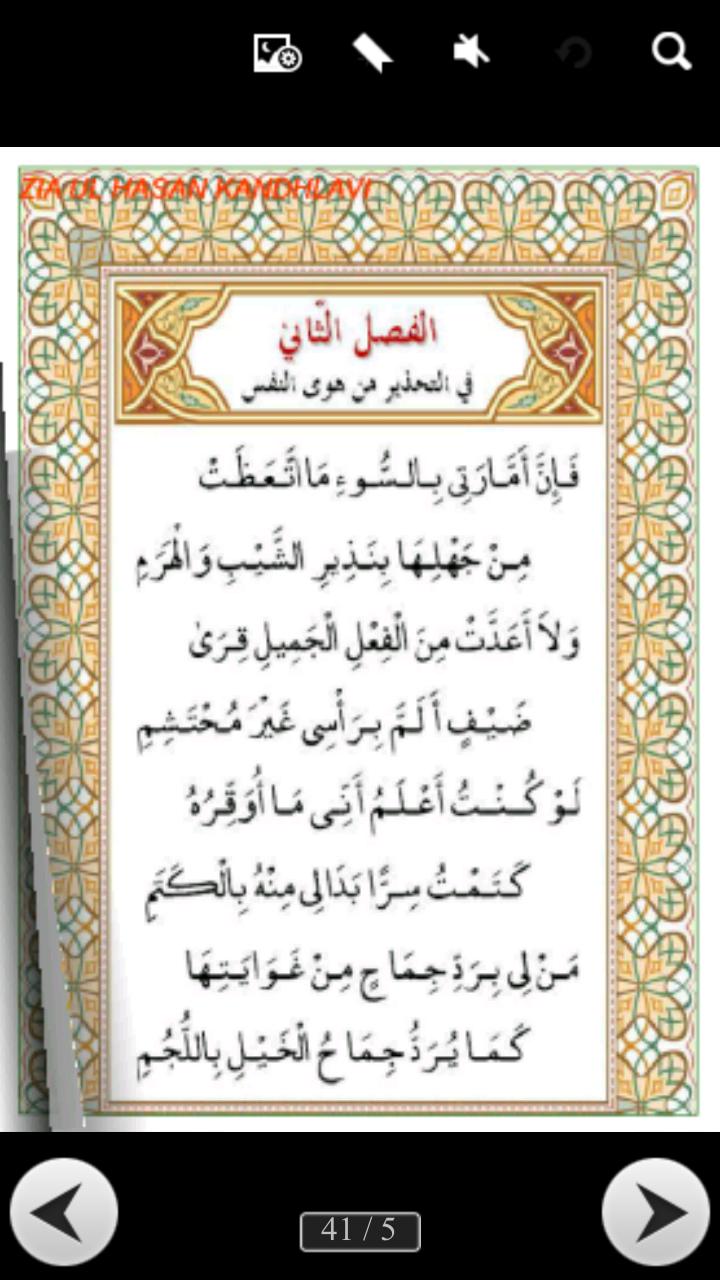 ZIA UL HASAN KANDHLAVI
الفصل الثّاني
في التحذير من هوى النفس
فَإِنَّ أَمَّارَتِى بِالسُّوءِ مَا اتَّعَظَتْ
مِنْ جَهْلِهَا بِنَذِيرِ الشَّيْبِ وَالْهَرَمِ
وَلاَ أَعَدَّتْ مِنَ الْفِعْلِ الْجَمِيلِ قِرَىٰ
ضَيْفٍ أَلَمَّ بِرَأْسِى غَيْرَ مُحْتَشِمِ
لَوْ كُنْتُ أَعْلَمُ أَنِّى مَا أُوَقِّرُهُ
كَتَمْتُ سِرًّا بَدَالِى مِنْهُ بِالْكَتَمِ
مَنْ لِى بِرَدِّ جِمَاحٍ مِنْ غَوَايَتِهَا
كَمَا يُرَدُّ جِمَاحُ الْخَيْلِ بِاللُّجُمِ
41 / 5